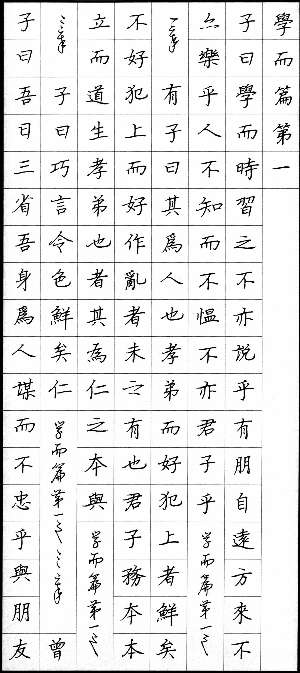 學而篇第一
子曰學而時習之不亦說乎有朋自遠方來不
亦樂乎人不知而不愠不亦君子乎学而篇第一之
一章有子曰其爲人也孝弟而好犯上者鮮矣
不好犯上而好作亂者未之有也君子務本本
立而道生孝弟也者其為仁之本與学而篇第一之
二章子曰巧言令色鮮矣仁学而篇第一之三章曾
子曰吾日三省吾身爲人謀而不忠乎與朋友